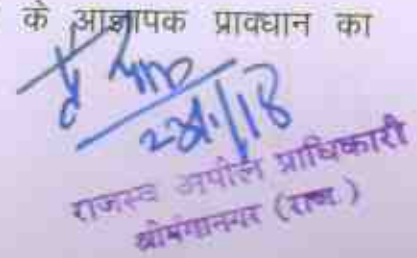 के आज्ञापक प्रावधान का
राजस्व अपील प्राधिकारी
श्रीगंगानगर (राज.)